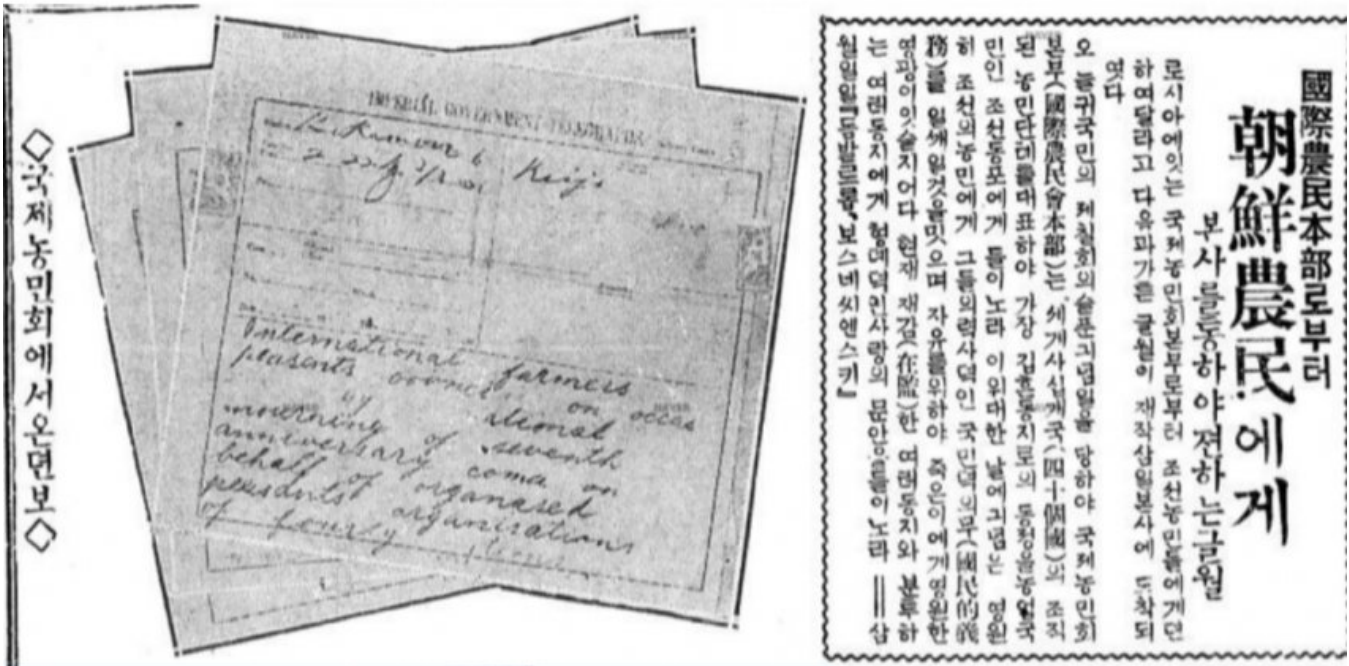 國際農民本部로부터
朝鮮農民에게
본사를통하야 전하는글월
로시아에잇는 국제농민회본부로부터 조선농민들에게뎐
하여달라고 다음과가튼 글월이 재작삼일본사에 도착되
엿다
오늘귀국민의 뎨칠회의슬픈긔념일을 당하야 국제농민회
본부(國際農民會本部)는 세계사십개국(四十個國)의 조직
된 농민단톄를대표하야 가장 깁흔동지로의 동정을농업국
민인 조선동포에게 들이노라 이위대한 날에긔념는 영원
히 조선의농민에게 그들의력사덕인 국민덕의무(國民的義
務)를 일깨일것을밋으며 자유를위하야 죽은이에게영원한
영광이잇슬지어다 현재 재감(在監)한 여러동지와 분투하
는 여러동지에게 형뎨덕인사랑의 문안을들이노라 ==삼
월일일
보스네씨엔스키』
IMPERIAL GOVERNMENT TELEGRAPHS
Keijo
International farmers
peasents on occas
mourning of seventh
anniversary coma on
behalf of organased
peasents organisations
of fourly
◇국제농민회에서온뎐보◇